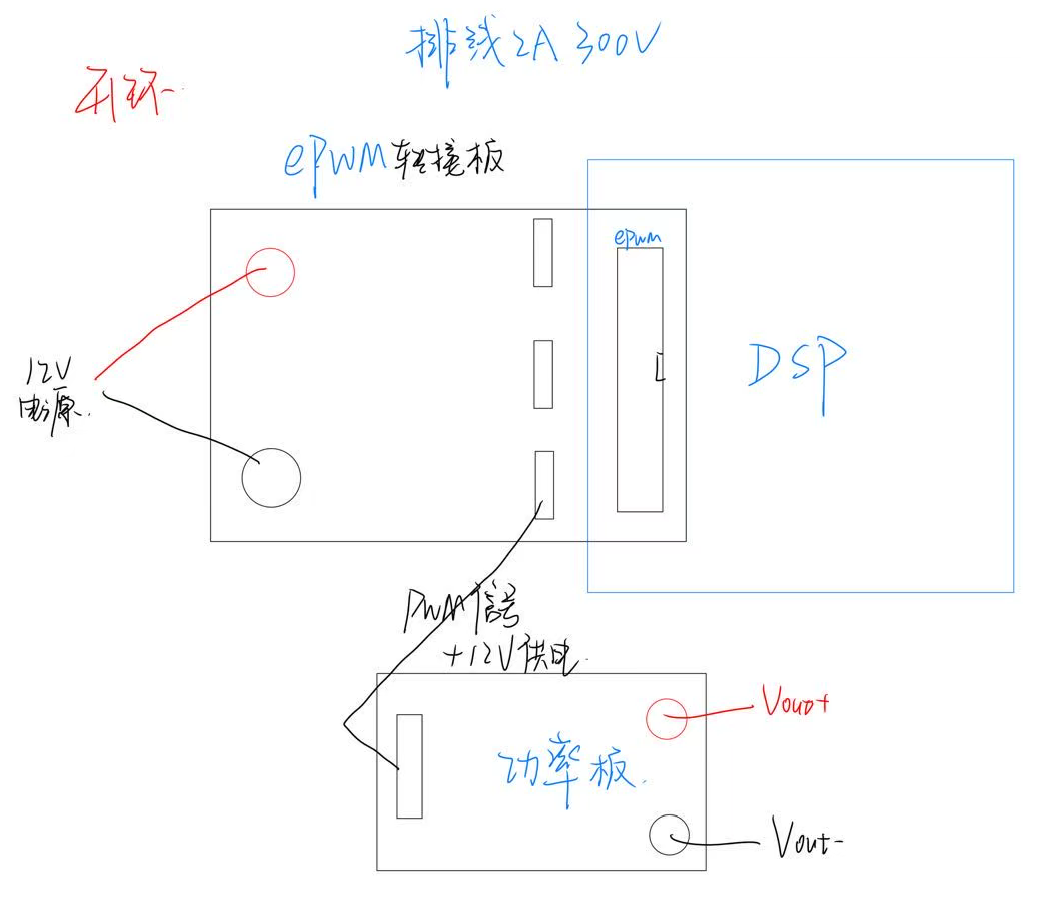 排线2A 300V
开环
ePWM转接板
epwm
12V
电源.
DSP
PWM信号
+12V供电.
Vout+
功率板.
Vout-